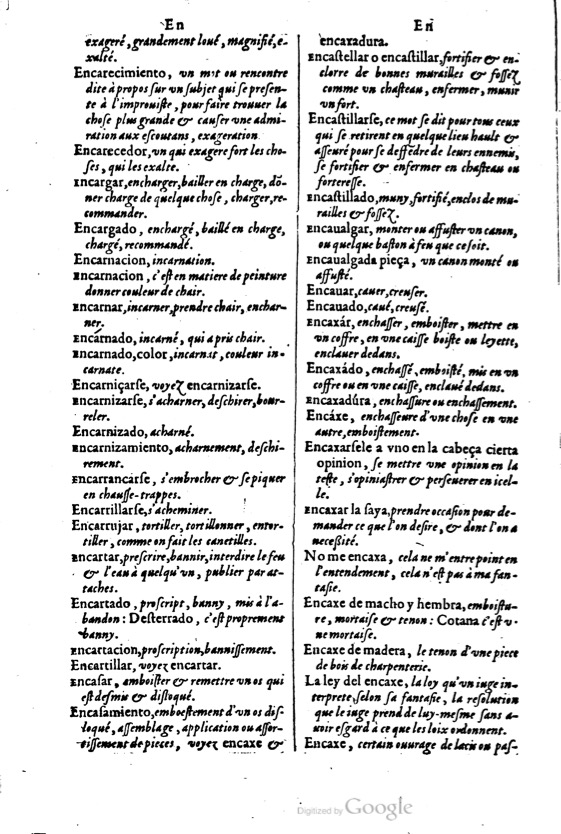 En
exageré, grandement loué, magnifié, e-
xalté.
Encarecimiento, vn mot ou rencontre
dite à propos sur vn subjet qui se presen-
te à l'improuiste, pour faire trouuer la
chose plus grande & causer vne admi-
ration aux escoutans, exageration.
Encarecedor, vn qui exagere fort les cho-
ses, qui les exalte.
Encargar, encharger, bailler en charge, dõ-
ner charge de quelque chose, charger, re-
commander.
Encargado, enchargé, baillé en charge,
chargé, recommandé.
Encarnacion, incarnation.
Encarnacion, c'est en matiere de peinture
donner couleur de chair.
Encarnar, incarner, prendre chair, enchar-
ner.
Encarnado, incarné, qui a pris chair.
Encarnado, color, incarnat, couleur in-
carnate.
Encarniçarse, voyez encarnizarse.
Encarnizarse, s'acharner, deschirer, bour-
reler.
Encarnizado, acharné.
Encarnizamiento, acharnement, deschi-
rement.
Encarrancarse, s'embrocher & se piquer
en chausse-trappes.
Encarrillarse, s'acheminer.
Encarrujar, tortiller, tortillonner, entor-
tiller, comme on fait les canetilles.
Encartar, prescrire, bannir, interdire le feu
& l'eau à quelqu'vn, publier par at-
taches.
Encartado, proscript, banny, mis à l'a-
bandon: Desterrado, c'est proprement
banny.
Encartacion, proscription, bannissement.
Encartillar, voyez encartar.
Encasar, amboister & remettre vn os qui
est demis & disloqué.
Encasamiento, emboestement d'vn os dis-
loqué, assemblage, application ou assor-
tissement de pieces, voyez encaxe &
En
encaxadura.
Encastellar o encastillar, fortifier & en-
clorre de bonnes murailles & fossez
comme vn chasteau, enfermer, munir
vn fort.
Encastillarse, ce mot se dit pour tous ceux
qui se retirent en quelque lieu hault &
asseuré pour se deffẽdre de leurs ennemis,
se fortifier & enfermer en chasteau ou
forteresse.
Encastillado, muny, fortifié, enclos de mu-
railles & fossez.
Encaualgar, monter ou affuster vn canon,
ou quelque baston à feu que ce soit.
Encaualgada pieça, vn canon monté ou
affusté.
Encauar, cauer, creuser.
Encauado, caué, creusé.
Encaxár, enchasser, emboister, mettre en
vn coffre, en vne caisse boiste ou leyette,
enclauer dedans.
Encaxádo, enchassé, emboisté, mis en vn
coffre ou en vne caisse, enclaué dedans.
Encaxadúra, enchassure ou enchassement.
Encáxe, enchasseure d'vne chose en vne
autre, emboistement.
Encaxarsele a vno en la cabeça cierta
opinion, se mettre vne opinion en la
teste, s'opiniastrer & perseuerer en icel-
le.
Encaxar la saya, prendre occasion pour de-
mander ce que l'on desire, & dont l'on a
necessité.
No me encaxa, cela ne m'entre point en
l'entendement, cela n'est pas à ma fan-
tasie.
Encaxe de macho y hembra, emboistu-
re, mortaise & tenon: Cotana c'est v-
ne mortaise.
Encaxe de madera, le tenon d'vne piece
de bois de charpenterie.
La ley del encaxe, la loy qu'vn iuge in-
terprete, selon sa fantasie, la resolution
que le iuge prend de luy-mesme sans a-
uoir esgard à ce que les loix ordonnent.
Encaxe, certain ouurage de lacis ou pas-
Digitized by Google